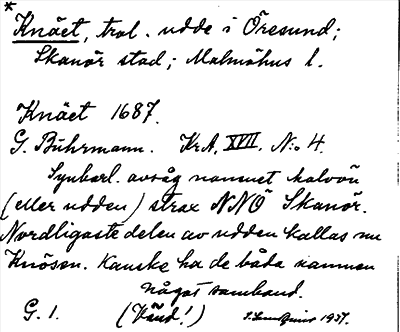 * Knäet, trol. udde i Öresund;
Skanör stad; Malmöhus l.
Knäet 1687.
G. Buhrmann. KrA, XVII, N:o 4.
Synbarl. avsåg namnet halvön
(eller udden) strax NNÖ Skanör.
Nordligaste delen av udden kallas nu
Knösen. Kanske ha de båda namnen
något samband.
G. 1. (Vänd!) 1937.